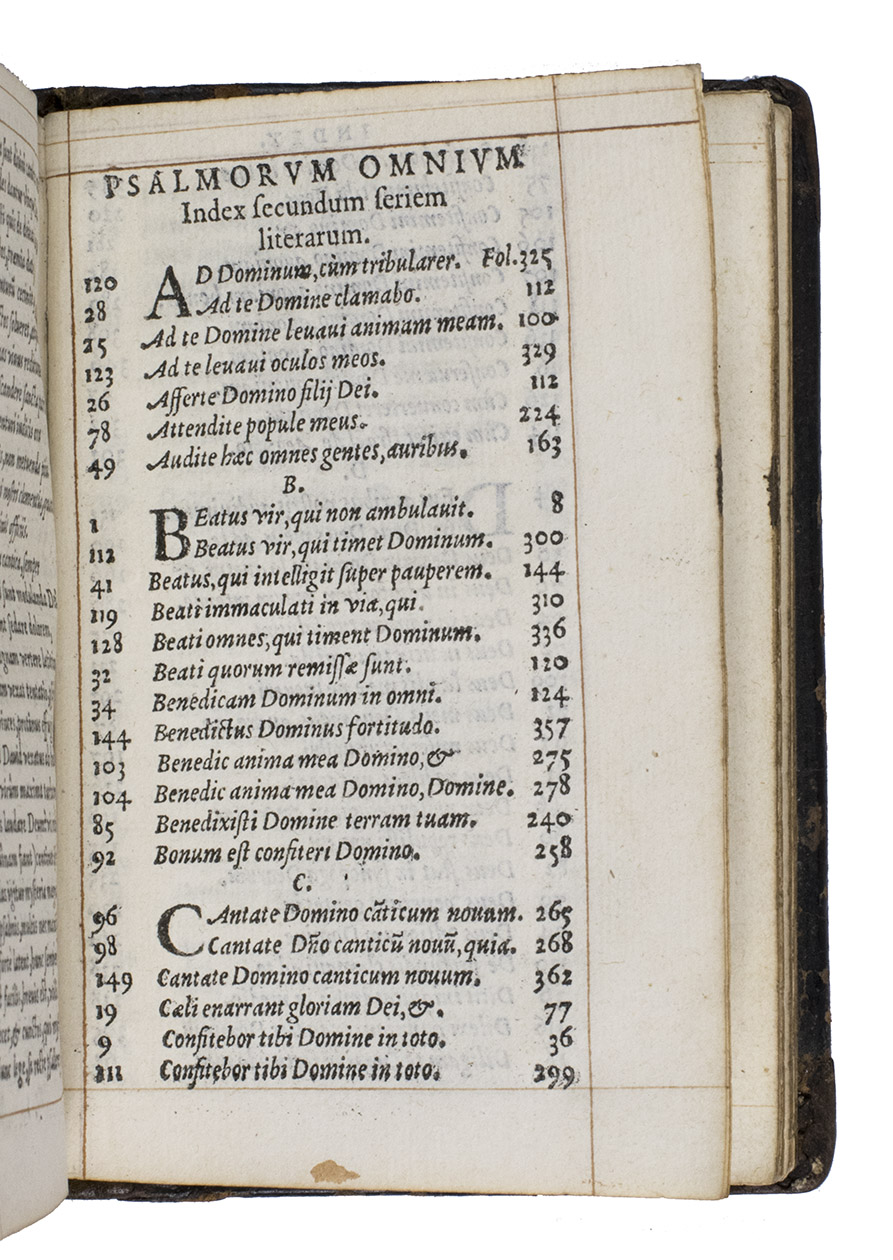 PSALMORVM OMNIVM
Index ſecundum ſeriem
literarum.
120 AD Dominum, cùm tribularer. Fol. 325
28 Ad te Domine clamabo. 112
25 Ad te Domine leuaui animam meam. 100
123 Ad te leuaui oculos meos. 329
26 Afferte Domino filij Dei. 112
78 Attendite popule meus. 224
49 Audite hæc omnes gentes, auribus. 163
B.
1 BEatus vir, qui non ambulauit. 8
112 Beatus vir, qui timet Dominum. 300
41 Beatus, qui intelligit ſuper pauperem. 144
119 Beati immaculati in via, qui. 310
128 Beati omnes, qui timent Dominum. 336
32 Beati quorum remiſſæ ſunt. 120
34 Benedicam Dominum in omni. 124
144 Benedictus Dominus fortitudo. 357
103 Benedic anima mea Domino, & 275
104 Benedic anima mea Domino, Domine. 278
85 Benedixiſti Domine terram tuam. 240
92 Bonum eſt confiteri Domino. 258
C.
96 CAntate Domino cãticum nouum. 265
98 Cantate Dño canticũ nouũ, quia. 268
149 Cantate Domino canticum nouum. 362
19 Cæli enarrant gloriam Dei, &. 77
9 Confitebor tibi Domine in toto. 36
111 Confitebor tibi Domine in toto. 299